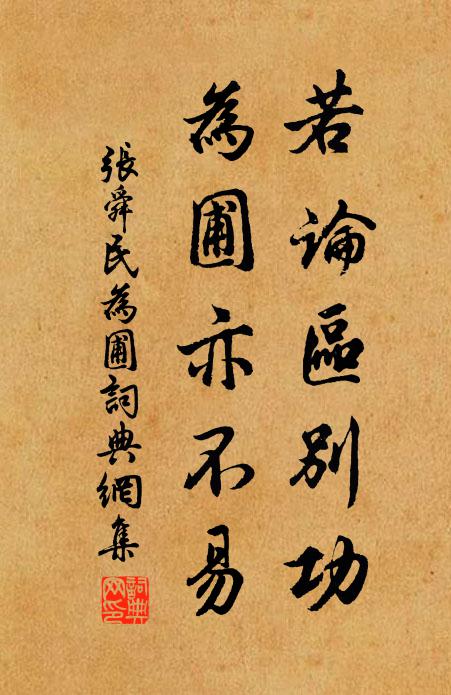 若論區別功
為圃亦不易
張舜民為圃詞典網集
詞典网印